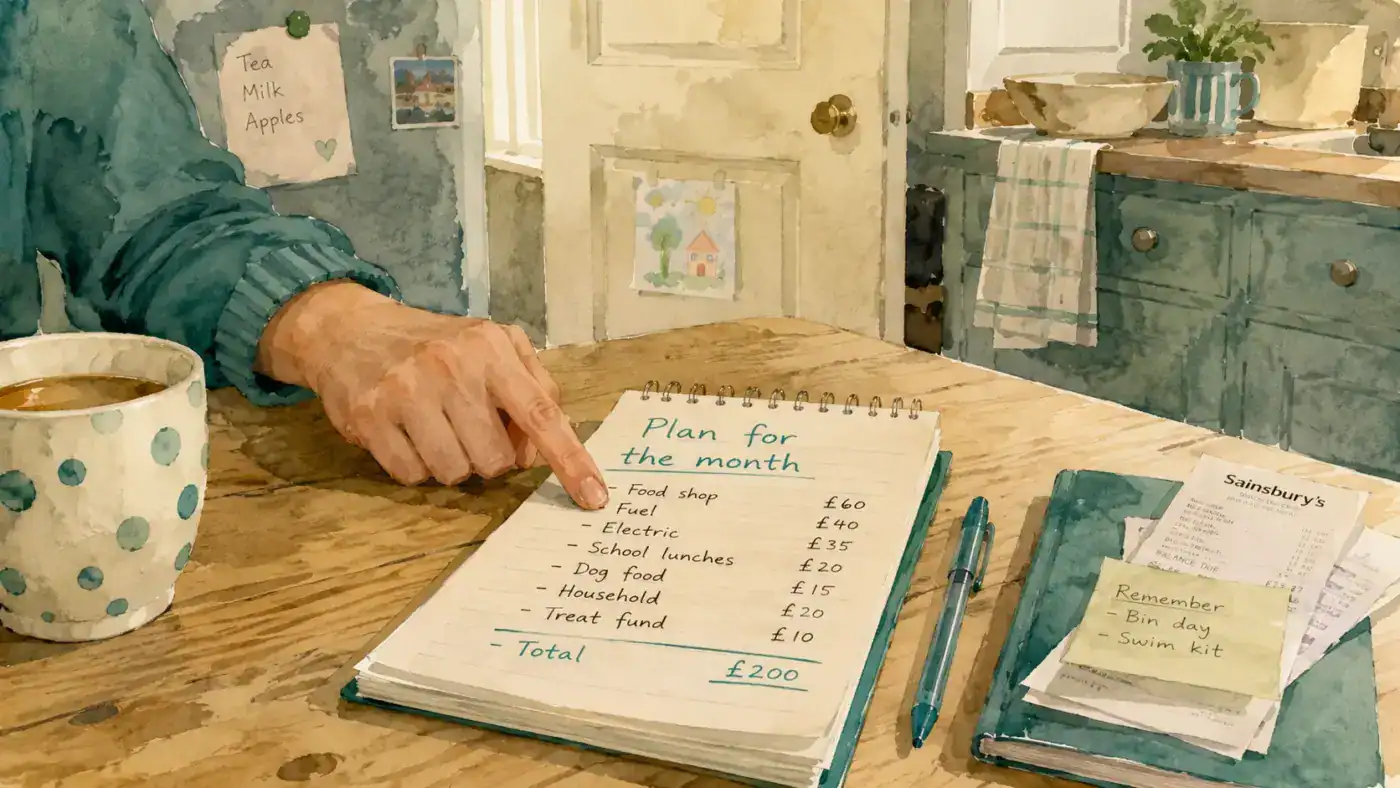 Tea
Milk
Apples
Plan for
the month
- Food shop £60
- Fuel £40
- Electric £35
- School lunches £20
- Dog food £15
- Household £20
- Treat fund £10
- Total £200
Sainsbury's
BALANCE DUE
Remember
- Bin day
- Swim kit